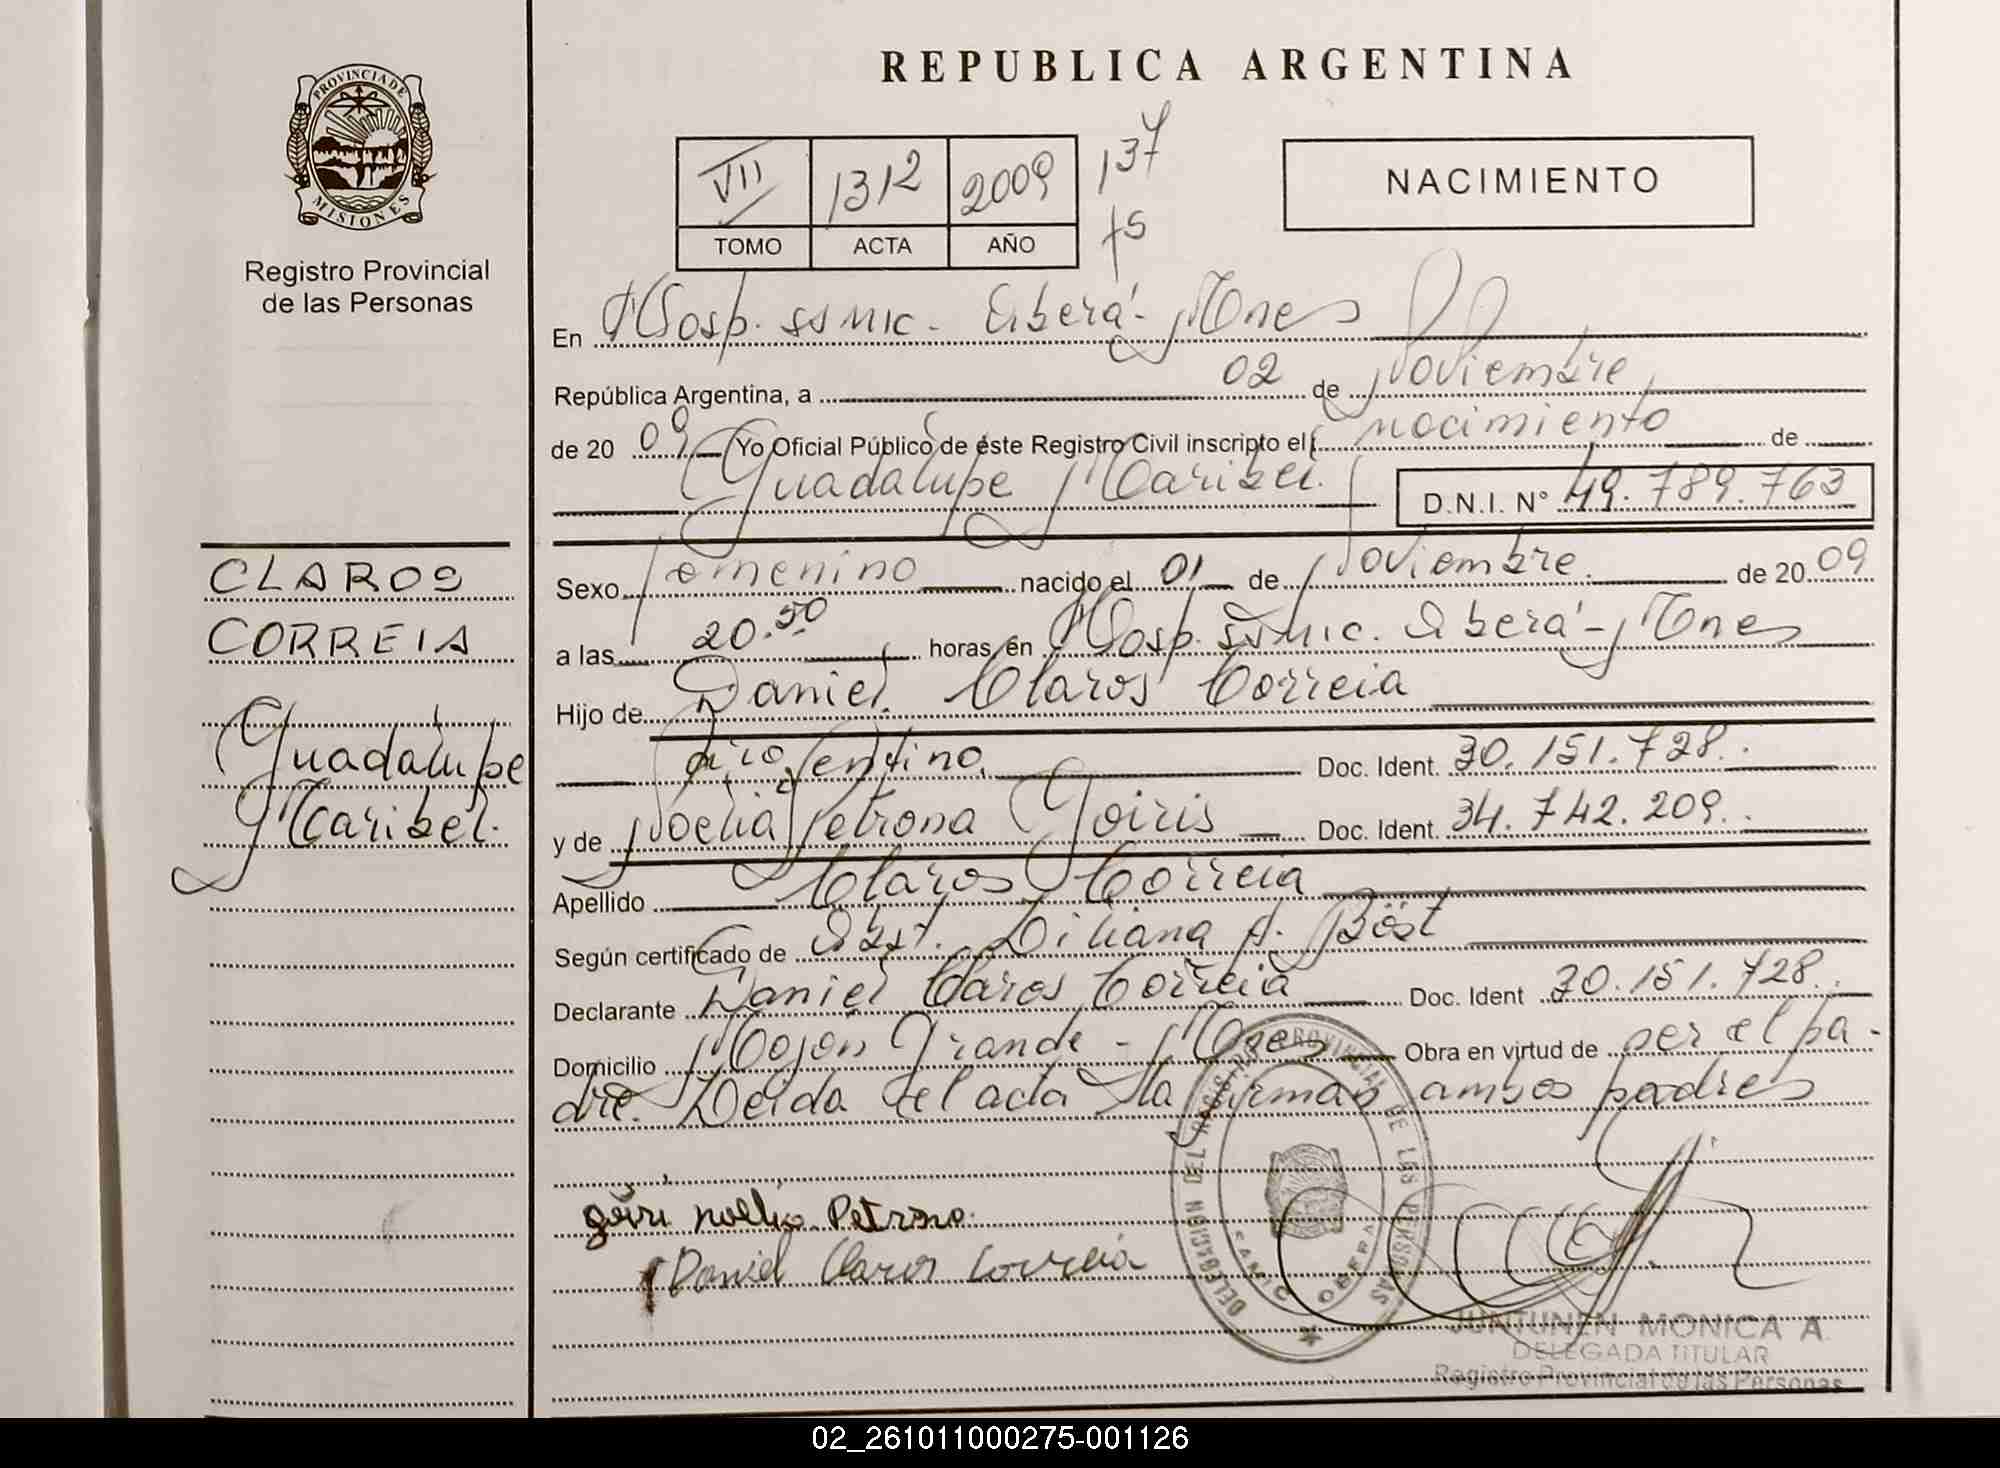 PROVINCIA DE
MISIONES
Registro Provincial
de las Personas
CLAROS
CORREIA
Guadalupe
Maribel.
REPUBLICA ARGENTINA
VII 1312 2009 137
TOMO ACTA AÑO
NACIMIENTO
En Hosp. SSMIC. Oberá - Mnes
República Argentina, a 02 de Noviembre
de 20 09 Yo Oficial Público de éste Registro Civil inscripto el nacimiento de
Guadalupe Maribel. D.N.I. N° 49.789.763
Sexo Femenino nacido el 01 de Noviembre de 20 09
a las 20.50 horas en Hosp. SSMIC. Oberá - Mnes
Hijo de Daniel Claros Correia
Argentino Doc. Ident. 30.151.728.
y de Noelia Petrona Goiris Doc. Ident. 34.742.209.
Apellido Claros Correia
Según certificado de Obst. Liliana A. Böst
Declarante Daniel Claros Correia Doc. Ident 30.151.728.
Domicilio Mojón Grande - Mnes Obra en virtud de ser el pa-
dre. Leida el acta la firman ambos padres
Petrona
Daniel Claros Correia
DELEGACION DEL REGISTRO PROVINCIAL DE LAS PERSONAS
OBERA
JUNTUNEN MONICA A.
DELEGADA TITULAR
Registro Provincial de las Personas
02_261011000275-001126